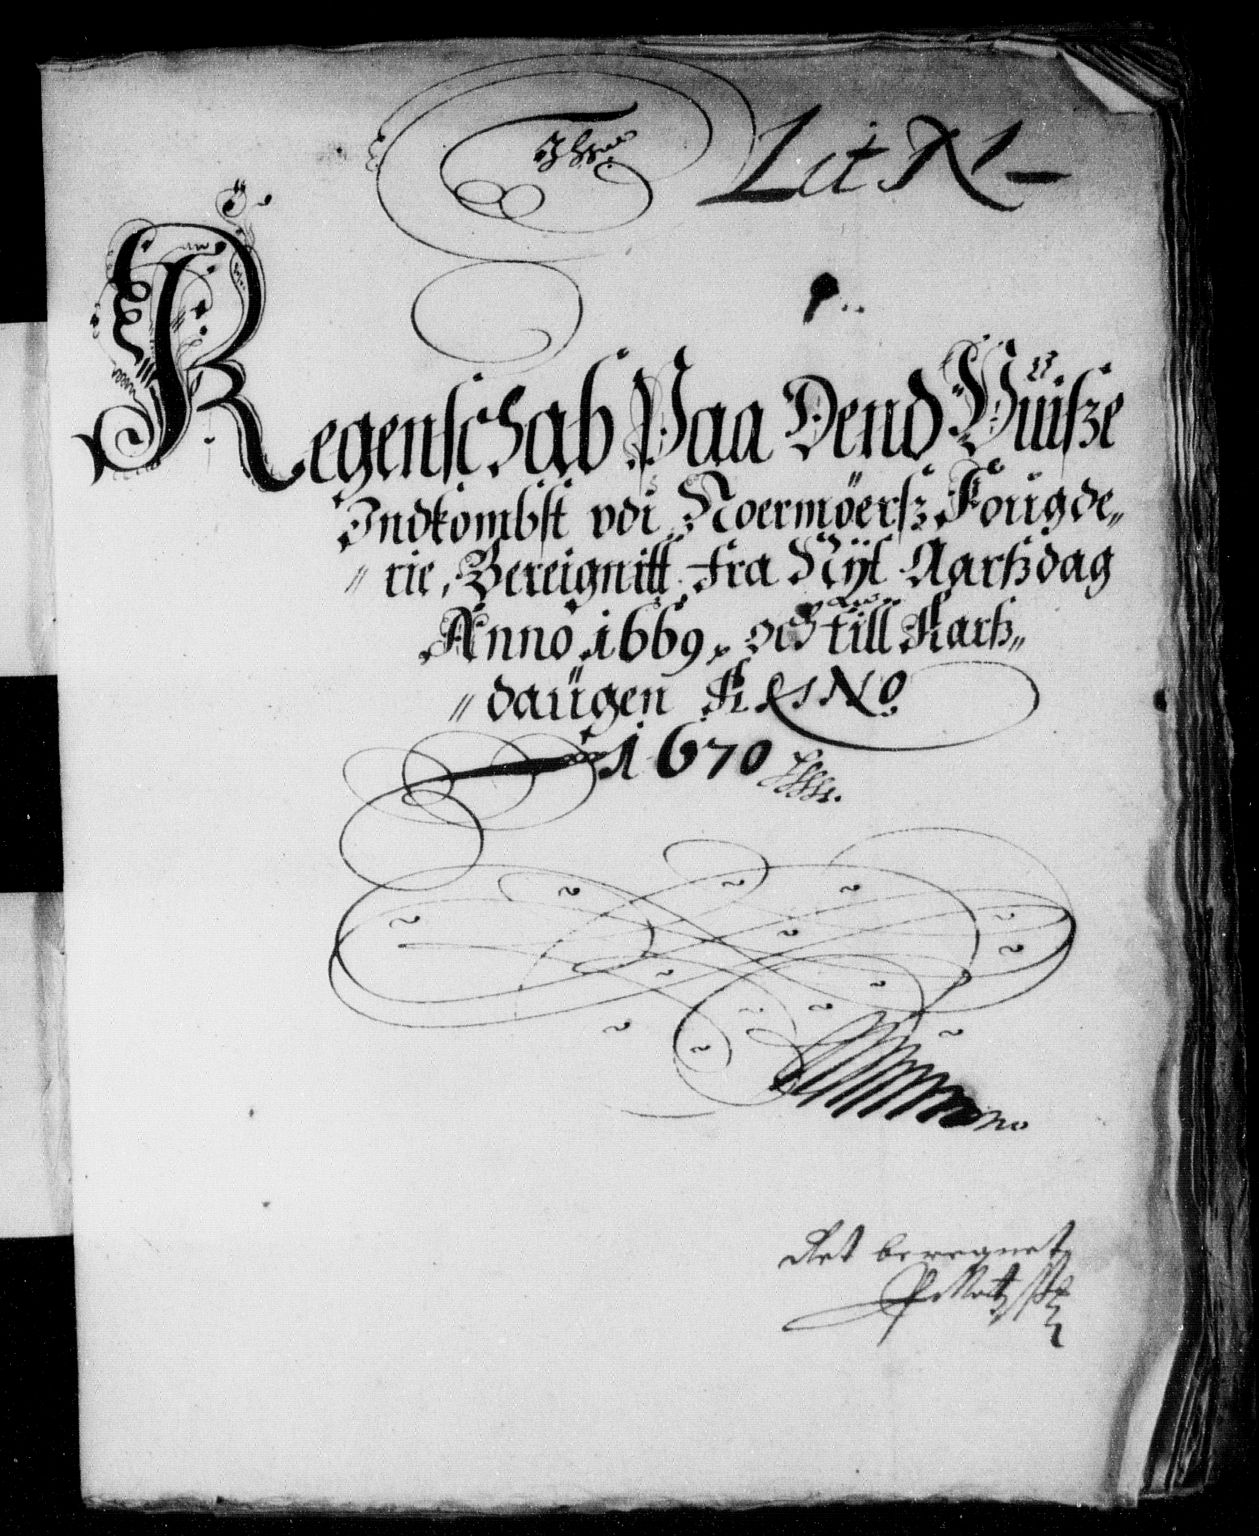 Lit N
Regenschab Paa Dend Vüisze
Indkombst udi Noermöersz Fougde„
„ rie, Bereignitt fra Nyt Aarszdag
Anno 1669, och till Aarsz„
„ daugen Anno
1670
Ret beregnet